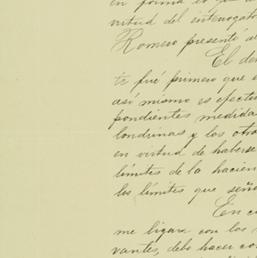 en forma lo que
virtud del interrogato
Romero presentó a
El de
te fué primero que
así mismo es efecti
pondientes medida
londrinas y los otra
en virtud de haberse
límites de la hacien
los límites que seño
En c
me ligara con los
vantes, debo hacer co